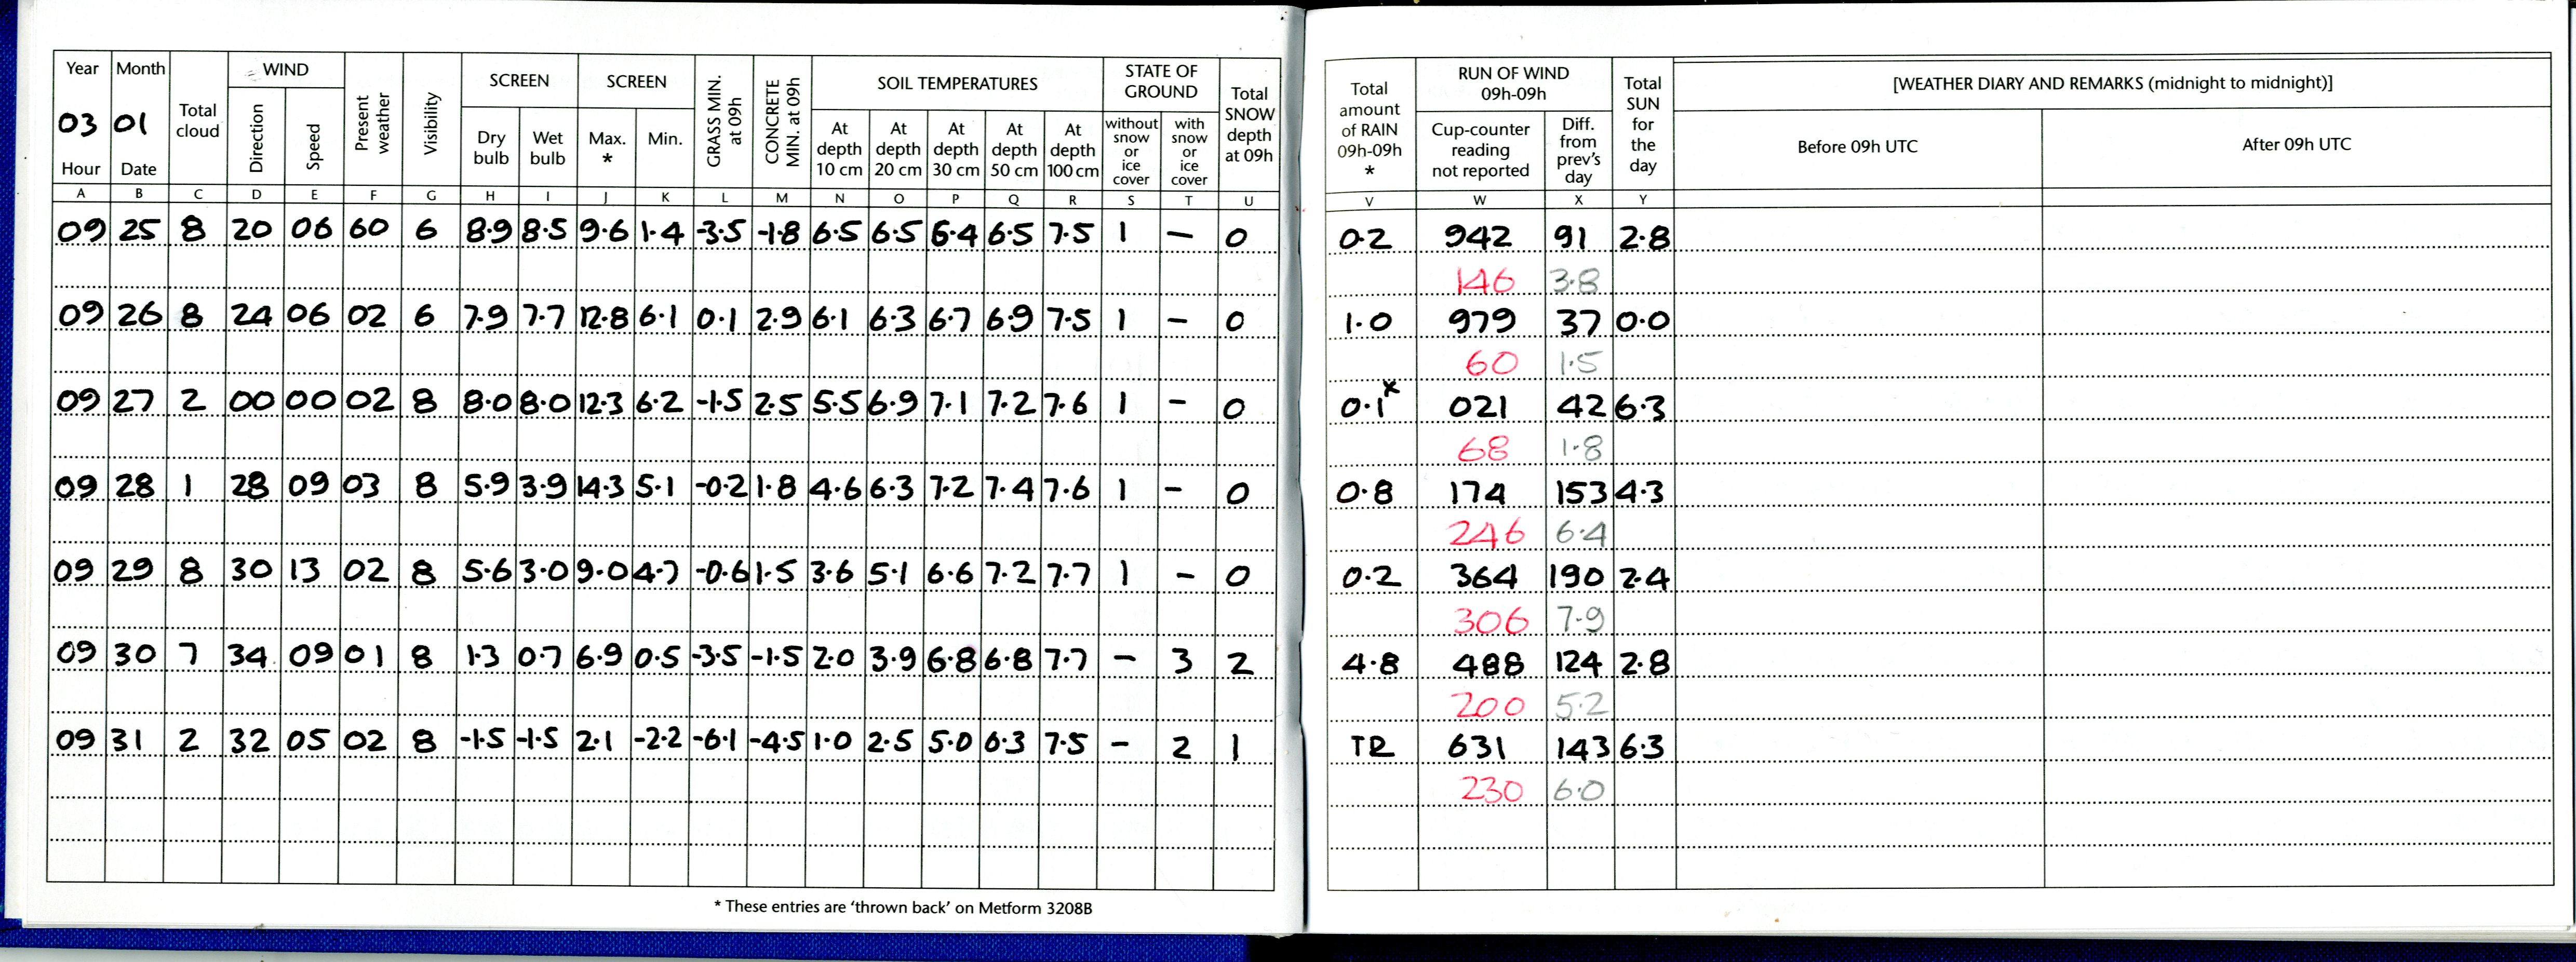 Year Month Total cloud WIND Present weather Visibility SCREEN SCREEN GRASS MIN. at 09h CONCRETE MIN. at 09h SOIL TEMPERATURES STATE OF GROUND Total SNOW depth at 09h
03 01 Direction Speed Dry bulb Wet bulb Max. * Min. At depth 10 cm At depth 20 cm At depth 30 cm At depth 50 cm At depth 100 cm without snow or ice cover with snow or ice cover
Hour Date
A B C D E F G H I J K L M N O P Q R S T U
09 25 8 20 06 60 6 8.9 8.5 9.6 1.4 -3.5 -1.8 6.5 6.5 6.4 6.5 7.5 1 — 0
09 26 8 24 06 02 6 7.9 7.7 12.8 6.1 0.1 2.9 6.1 6.3 6.7 6.9 7.5 1 - 0
09 27 2 00 00 02 8 8.0 8.0 12.3 6.2 -1.5 2.5 5.5 6.9 7.1 7.2 7.6 1 - 0
09 28 1 28 09 03 8 5.9 3.9 14.3 5.1 -0.2 1.8 4.6 6.3 7.2 7.4 7.6 1 - 0
09 29 8 30 13 02 8 5.6 3.0 9.0 4.7 -0.6 1.5 3.6 5.1 6.6 7.2 7.7 1 - 0
09 30 7 34 09 01 8 1.3 0.7 6.9 0.5 -3.5 -1.5 2.0 3.9 6.8 6.8 7.7 - 3 2
09 31 2 32 05 02 8 -1.5 -1.5 2.1 -2.2 -6.1 -4.5 1.0 2.5 5.0 6.3 7.5 - 2 1
* These entries are 'thrown back' on Metform 3208B
Total amount of RAIN 09h-09h * RUN OF WIND 09h-09h Total SUN for the day [WEATHER DIARY AND REMARKS (midnight to midnight)]
Cup-counter reading not reported Diff. from prev's day Before 09h UTC After 09h UTC
V W X Y
0.2 942 91 2.8
146 3.8
1.0 979 37 0.0
60 1.5
0.1x 021 42 6.3
68 1.8
0.8 174 153 4.3
246 6.4
0.2 364 190 2.4
306 7.9
4.8 488 124 2.8
200 5.2
TR 631 143 6.3
230 6.0